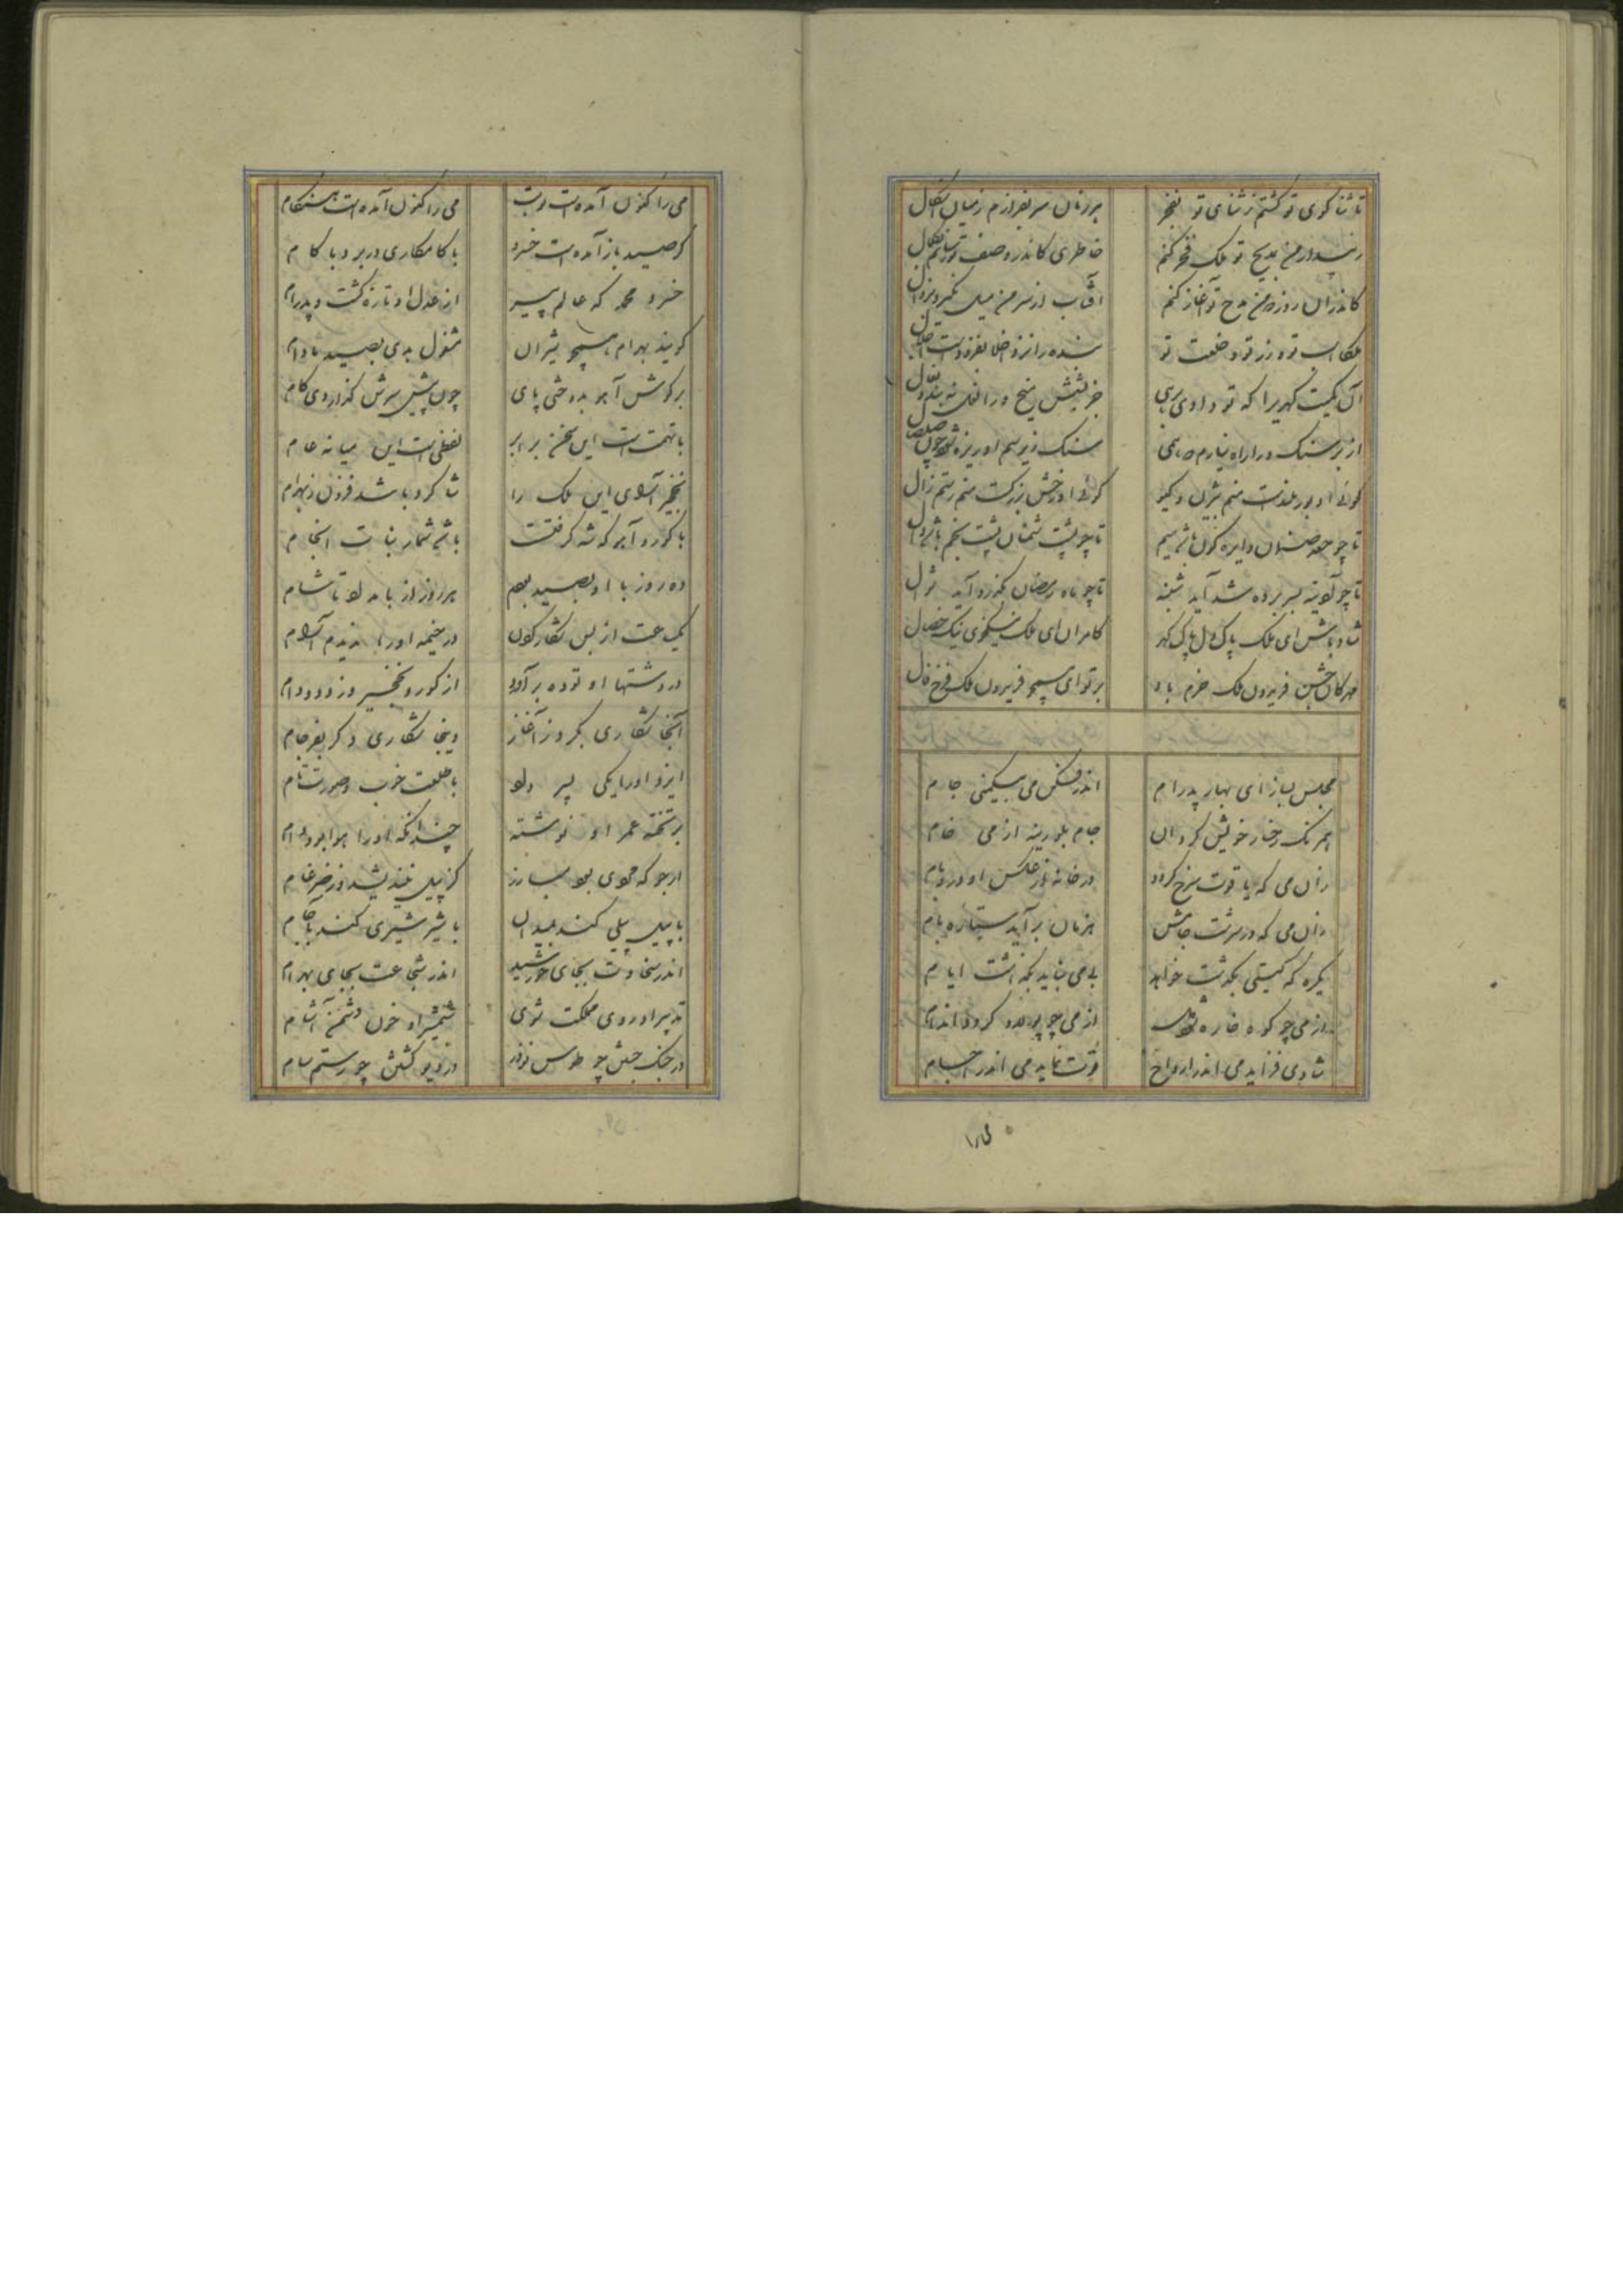 تا ثنا کوی تو کشتم ز ثنای تو بفخر هر زمان سر بفرازم ز میان اشکال
رسد ار من بمدیح تو ملک فخر کنم خاطری کاندر وصف تو رسانم بکمال
کاندران روز که من مدح تو آغاز کنم آفتاب از سر من میل نکیرد بزوال
ملکا اسب تو و زر تو و خلعت تو بنده را نزد اخلا بفزودست اجلال
آن کمیت کهریرا که تو دادی برهی جز بشش میخ ورا نعل نه بندد نعال
از بر سنک ورا راه نیارم سپمی سنک زیر سم او ریزه شود چون صلصال
کوئی او بور بلندست منم بیژن و کیو کوئی او رخش بزرکست منم رستم زال
تا چو جعد صنمان دایره کون باشد سیم تا چو پشت شمنان پشت بخم باشد دال
تا چو آدینه بسر برده شد آید شنبه تا چو ماه رمضان بکذرد آید شوال
شاد باش ای ملک پاک دل پاک کهر کامران ای ملک نیکخوی نیک خصال
مهرکان جشن فریدون ملک خرم باد بر تو ای همچو فریدون ملک فرخ فال
مجلس بساز ای بهار پدرام اندر فکن می بیکمنی جام
همرنک رخسار خویش کردان جام بلورینه از می خام
زان می که یاقوت سرخ کردد در خانه از عکس او در و بام
زان می که در شب ز جامش هزمان بر آید ستاره بام
یکره که کیتی بکذشت خواهد بی می نباید بکذاشت ایام
از می چو کوه خاره شود لعل از می چو پولاد کردد اندام
شادی فزاید می اندر ارواح قوت نماید می اندر اجسام
می را
می را کنون آمده است نوبت می را کنون آمده است هنکام
کز صید باز آمده است خسرو با کامکاری و بر و با کام
خسرو محمد که عالم پیر از عدل او تازه کشت و پدرام
کویند بهرام همچو شیران مشغول بدی بصید مادام
بر کوش آهو بدوختی پای چون پیش سرش کذاردی کام
با تهمتست این سخن برابر لفظیست این میانه عام
نخجیر آلای این ملک را شاکرد باشد فزون ز بهرام
با کور و آهو که شه کرفتست باشد شمار نبات انجام
ده روز با او بصید بودم هر روز از بامداد تا شام
یک ساعت از بس شکار کردن در خیمه او را ندیدم آرام
در دشتها او توده بر آورد از کور و نخجیر وز دد و دام
آنجا شکاری بکرد ز آغاز وینجا شکاری دکر بفرجام
ایزد او را یکی پسر داد با طلعت خوب و صورت تام
بر تخته عمر او نوشته چندانکه او را هوا بود دام
ارجو که مردی بود مبارز کز پیل نندیشد وز ضرغام
با پیل پیلی کند بمیدان با شیر شیری کند باجام
اندر سخاوت بجای خورشید اندر شجاعت بجای بهرام
تدبیر او روی مملکت شوی شمشیر او خون دشمن آشام
در جنک جستن چو طوس نوذر در دیو کشتن چو رستم سام